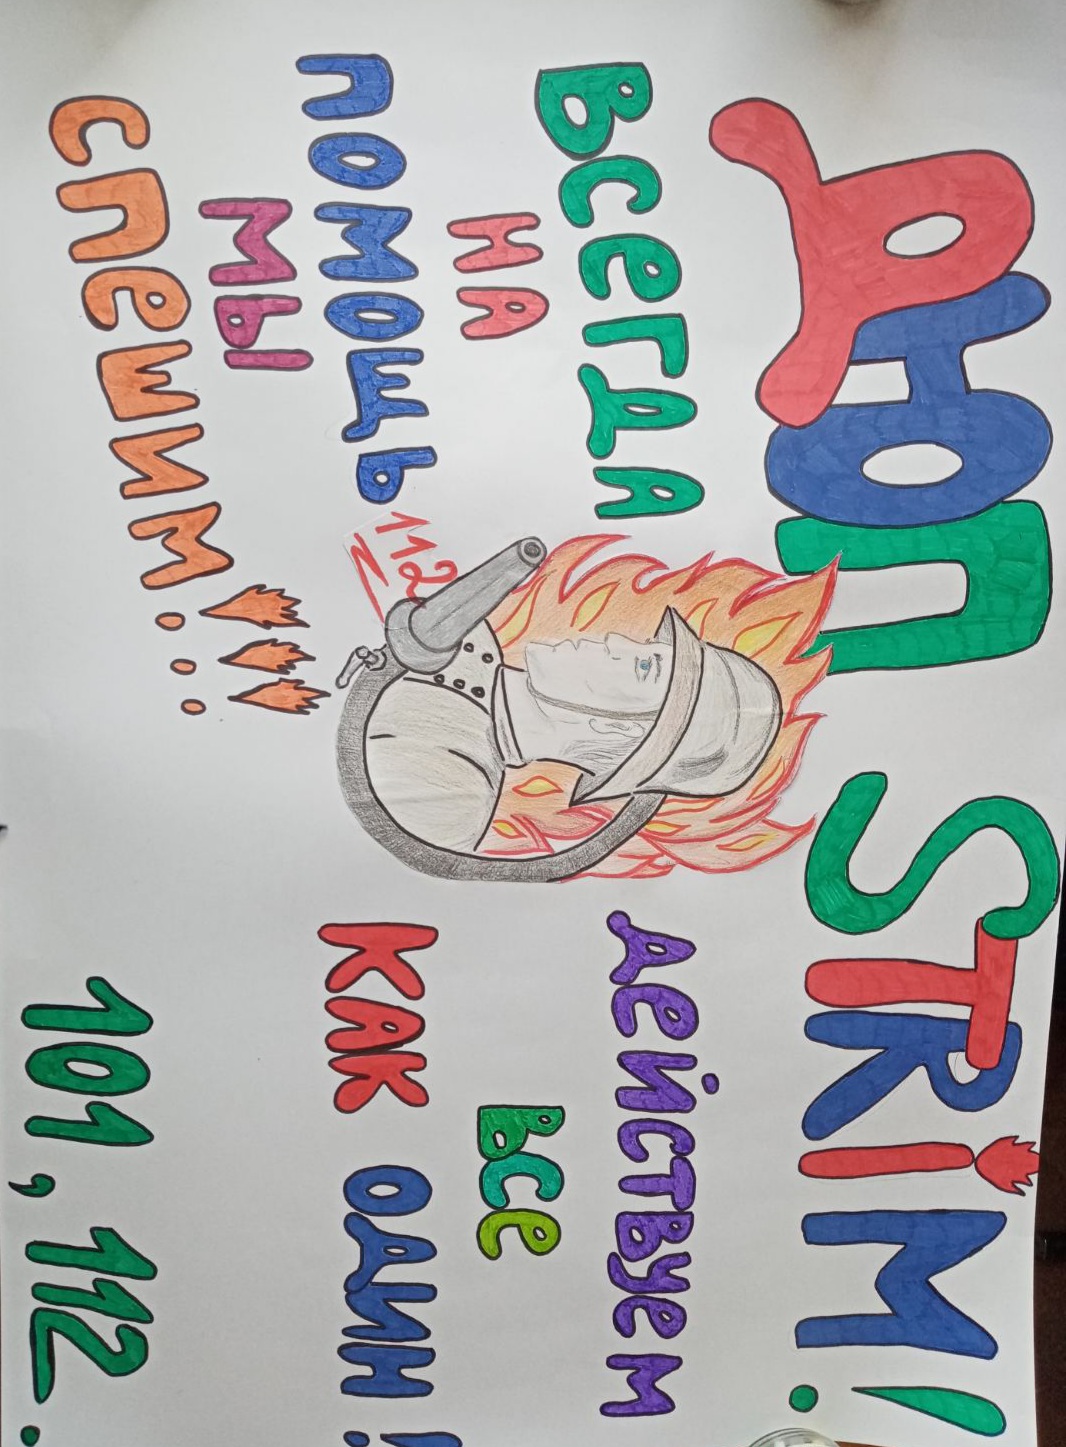 ДЮП STRiM!
ВСЕГДА
НА
ПОМОЩЬ
МЫ
СПЕШИМ!!!
112
ДЕЙСТВУЕМ
ВСЕ
КАК ОДИН!
101, 112.